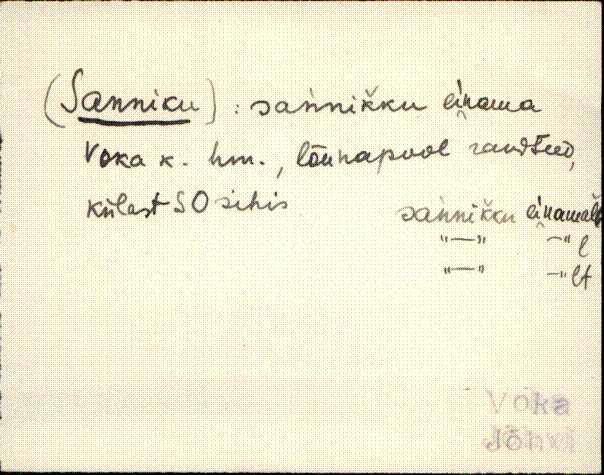 (Sanniku) : sańnikku einama
Voka k. hm., lõunapool raudteed,
külast SO sihis
sańnikku einamalle
"—" —" l
"—" —" lt
Voka
Jõhvi